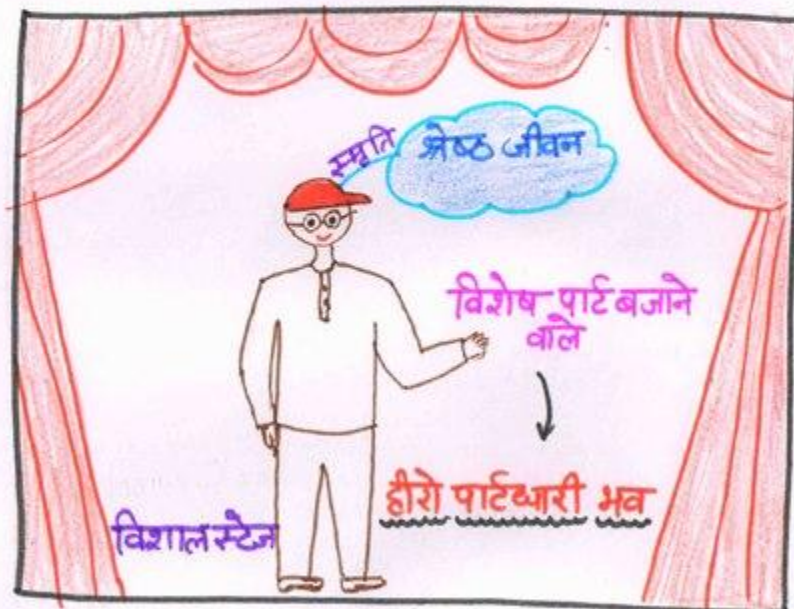 स्मृति
श्रेष्ठ जीवन
विशेष पार्ट बजाने
वाले
हीरो पार्टधारी भव
विशाल स्टेज